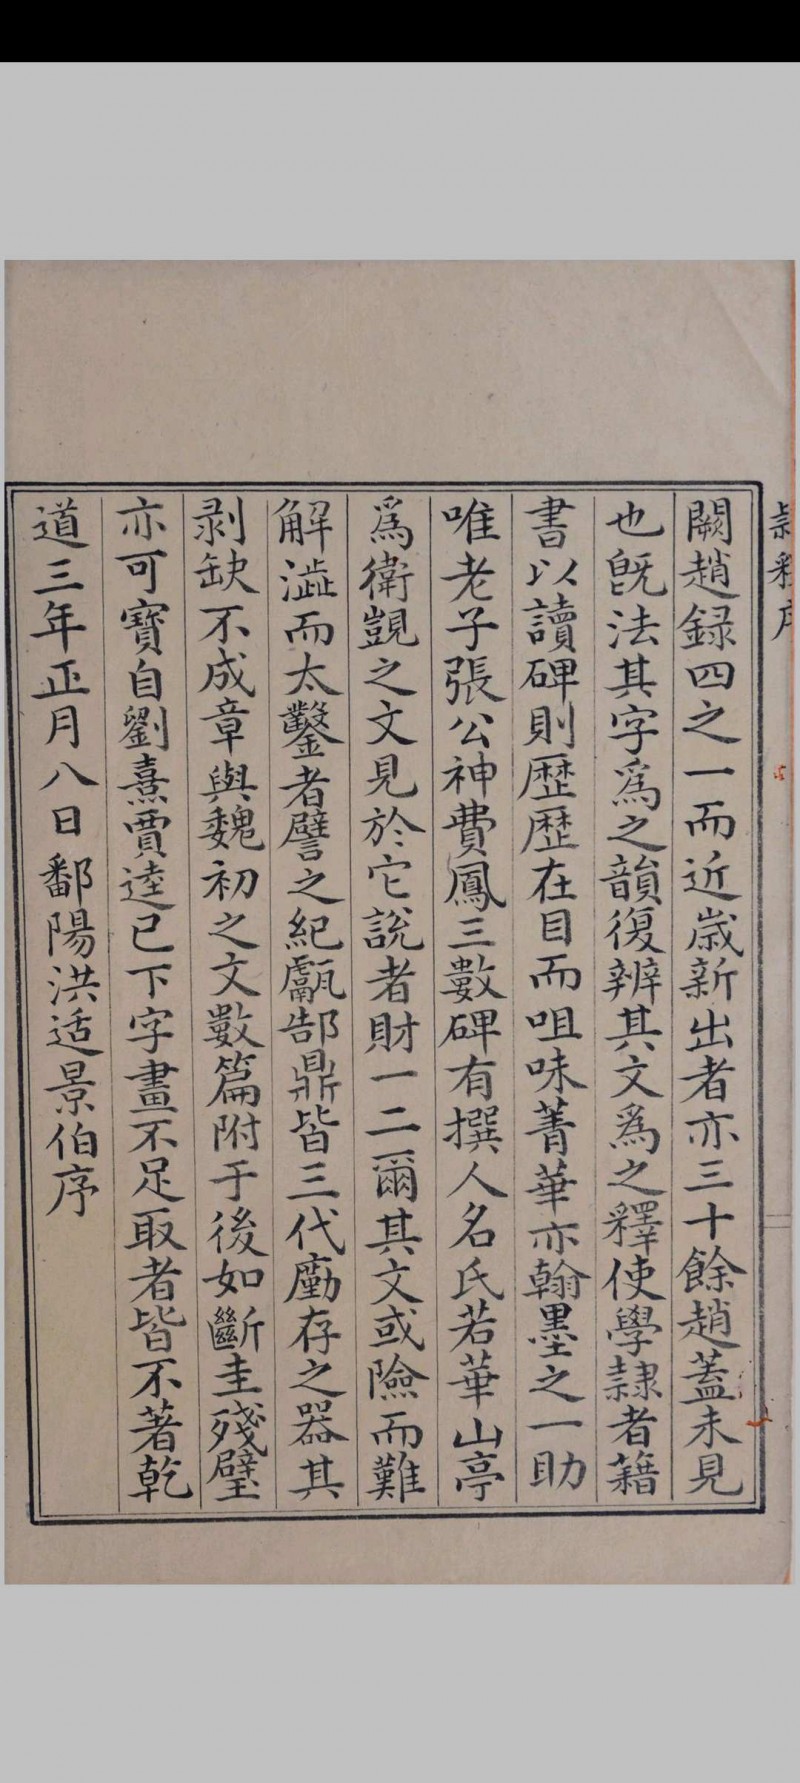 隷釋序
闕趙録四之一而近歳新出者亦三十餘趙蓋未見
也旣法其字爲之韻復辨其文爲之釋使學隷者籍
書以讀碑則歴歴在目而咀味菁華亦翰墨之一助
唯老子張公神費鳳三數碑有撰人名氏若華山亭
爲衛覬之文見於它說者財一二爾其文或險而難
解澁而太鑿者譬之紀甗郜鼎皆三代廟存之器其
剥缺不成章與魏初之文數篇附于後如斷圭殘璧
亦可寶自劉熹賈逵已下字畫不足取者皆不著乾
道三年正月八日鄱陽洪适景伯序